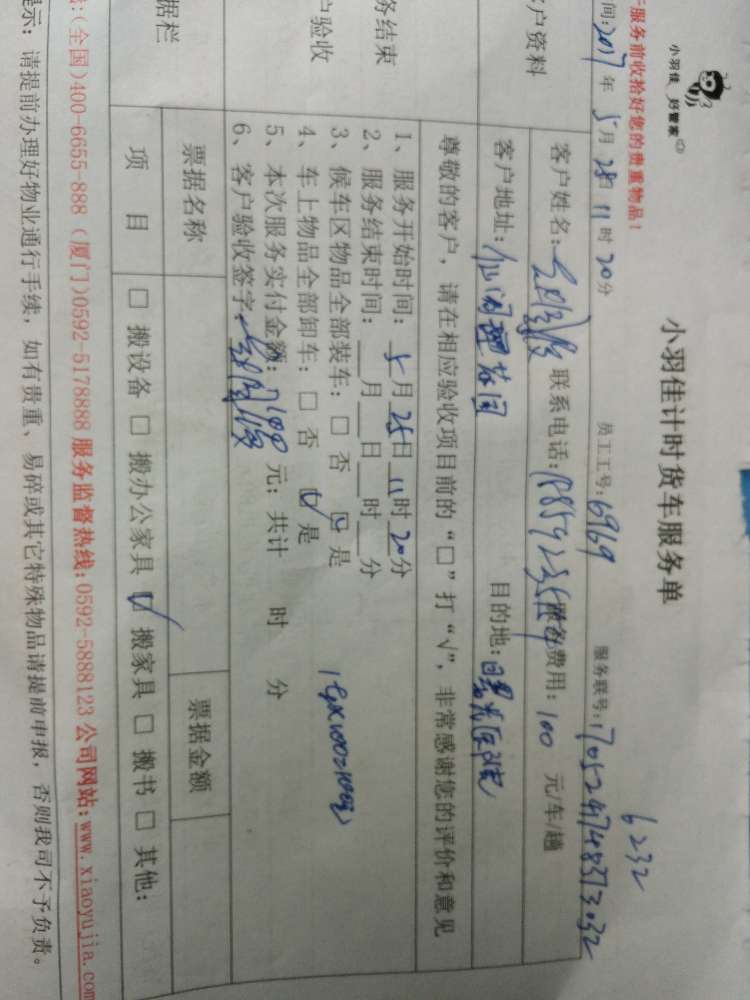 小羽佳 好管家
小羽佳计时货车服务单
6232
服务前收拾好您的贵重物品！
间：2017年5月28日11时20分 员工工号：6969 服务联号：
户资料
客户姓名： 联系电话： 费用：100 元/车/趟
客户地址： 目的地：
尊敬的客户，请在相应验收项目前的“□”打“√”，非常感谢您的评价和意见
务结束
户验收
1、服务开始时间：5月28日11时20分
2、服务结束时间：__月__日__时__分
3、候车区物品全部装车：□ 否 ☑ 是
4、车上物品全部卸车：□ 否 ☑ 是
5、本次服务实付金额：100元；共计 时 分
6、客户验收签字：
据栏
票据名称 票据金额
项 目 □ 搬设备 □ 搬办公家具 ☑ 搬家具 □ 搬书 □ 其他：
：(全国)400-6655-888 (厦门)0592-5178888 服务监督热线：0592-5888123 公司网站：www.xiaoyujia.com
示：请提前办理好物业通行手续，如有贵重、易碎或其它特殊物品请提前申报，否则我司不予负责。